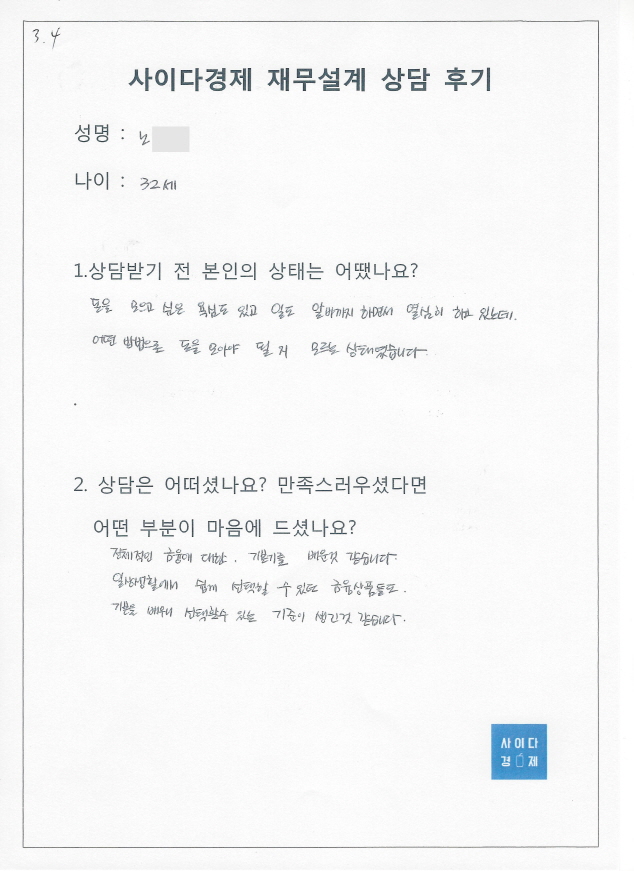 3.4
사이다경제 재무설계 상담 후기
성명 : 노
나이 : 32세
1.상담받기 전 본인의 상태는 어땠나요?
돈을 모으고 싶은 욕심도 있고 일도 알바까지 하면서 열심히 하고 있는데.
어떤 방법으로 돈을 모아야 될 지 모르는 상태였습니다.
2. 상담은 어떠셨나요? 만족스러우셨다면
어떤 부분이 마음에 드셨나요?
전체적인 금융에 대한. 기본기를 배운것 같습니다.
일상생활에서 쉽게 선택할 수 있던 금융상품들도.
기본을 배우니 선택할수 있는 기준이 생긴것 같습니다.
사이다
경제